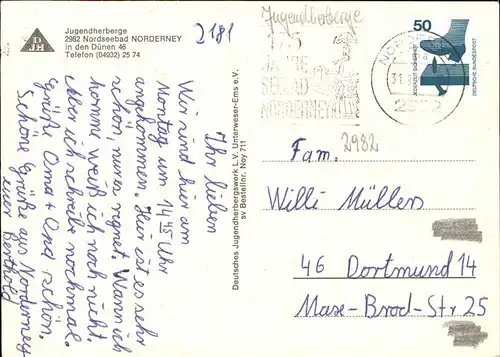 DJH
Jugendherberge
2982 Nordseebad NORDERNEY
in den Dünen 46
Telefon (04932) 25 74
2181
Jugendherberge
175
JAHRE
SEEBAD
NORDERNEY
50
JEDERZEIT SICHERHEIT
DEUTSCHE BUNDESPOST
2982
Ihr lieben
Wir sind hier am
Montag um 14 45 Uhr
angekommen. Hier ist es sehr
schön, nur es regnet. Wann ich
komme weiß ich noch nicht.
Aber ich schreibe nochmal.
Grüße Oma + Opa schön.
Schöne Grüße aus Norderney
euer Berthold
Deutsches Jugendherbergswerk L.V. Unterweser-Ems e.V.
sv Bestellnr. Ney 711
Fam.
2982
Willi Müllers
46 Dortmund 14
Max-Brod-Str 25